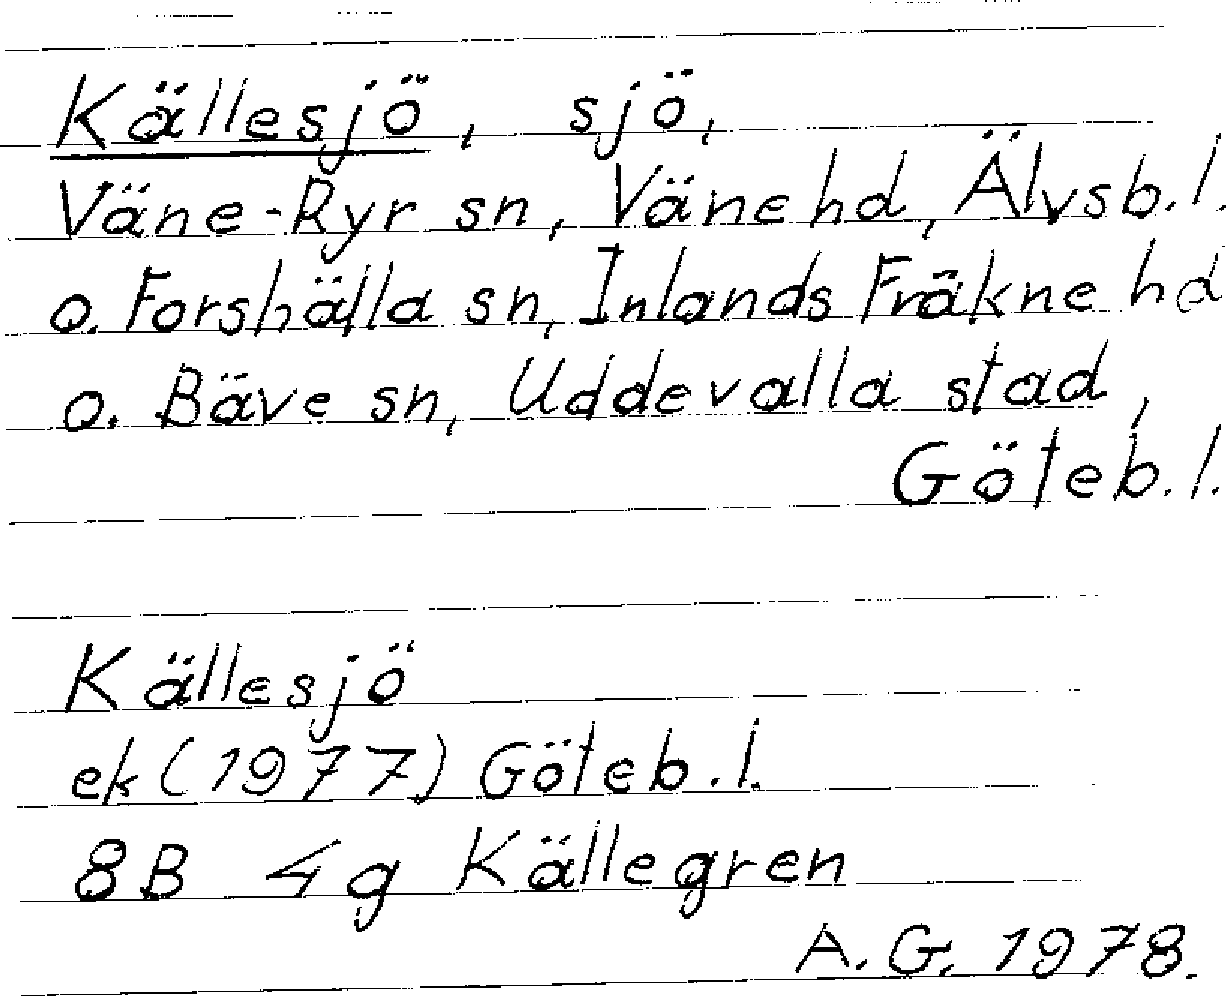 Källesjö, sjö,
Väne-Ryr sn, Väne hd, Älvsb. l.
o. Forshälla sn, Inlands Fräkne hd
o. Bäve sn, Uddevalla stad,
Göteb. l.
Källesjö
ek (1977) Göteb. l.
8B 4g Källegren
A. G. 1978.